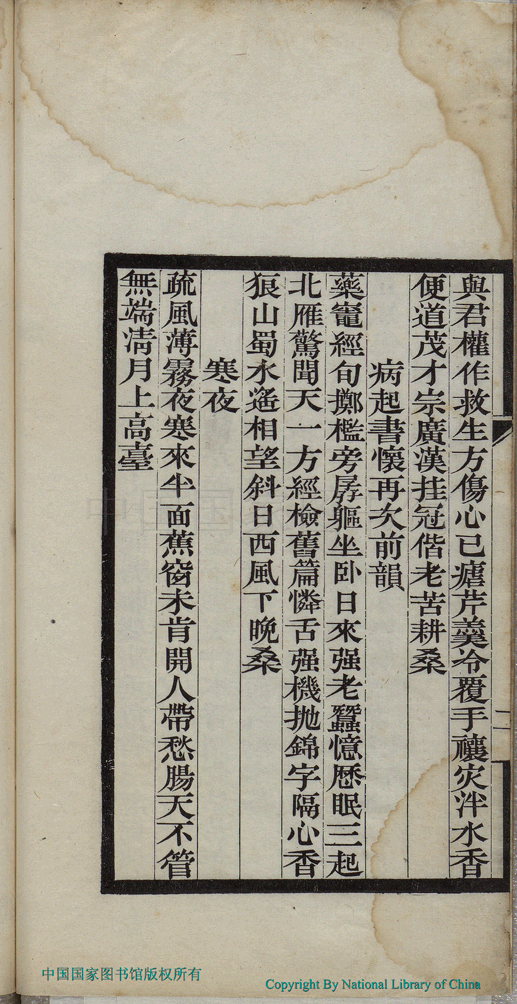 與君權作救生方傷心已瘧芹羹冷覆手禳灾泮水香
便道茂才宗廣漢挂冠偕老苦耕桑
病起書懷再次前韻
藥竈經旬擲檻旁孱軀坐卧日來强老蠶憶歷眠三起
北雁驚聞天一方經檢舊篇憐舌强機抛錦字隔心香
狼山蜀水遙相望斜日西風下晚桑
寒夜
疏風薄霧夜寒來半面蕉窗未肯開人帶愁腸天不管
無端清月上高臺
中国国家图书馆版权所有
Copyright By National Library of China